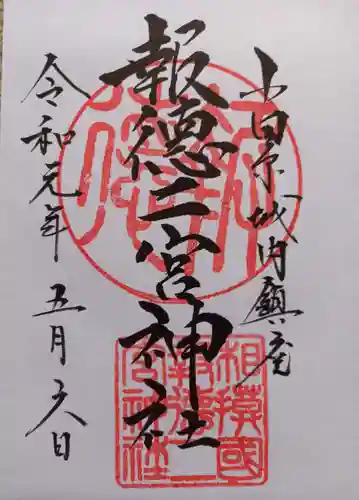 小田原城内鎮座
報徳二宮神社
令和元年 五月六日
相模國
報徳二
宮神社